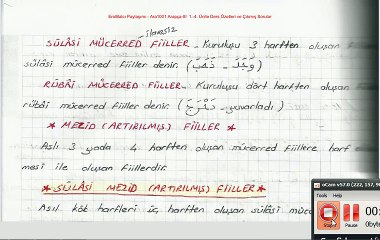 Enstitülü Paylaşımı - Aöf/1001 Arapça-III 1.-4. Ünite Ders Özetleri ve Çıkmış Sorular
ilavesiz
SÜLÂSİ MÜCERRED FİİLLER - Kuruluşu 3 harften oluşan f
sülâsi mücerred fiiller denir. (وَجَدَ - ذَهَبَ)
RÜBÂİ MÜCERRED FİİLLER - Kuruluşu dört harften oluşan
rübâi mücerred fiiller denir (دَحْرَجَ - yuvarladı)
* MEZİD (ARTIRILMIŞ) FİİLLER *
Aslı 3 yada 4 harften oluşan mücerred fiillere harf
mesi ile oluşan fiillerdir.
* SÜLÂSİ MEZİD (ARTIRILMIŞ) FİİLLER *
Asıl kök harfleri üç harften oluşan sülâsi müc
oCam v57.0 (222, 157, 9
Stop Pause
00:
0byte